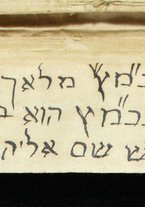 כמ״ץ מלאך
בכמ״ץ הוא
ש שם אליה